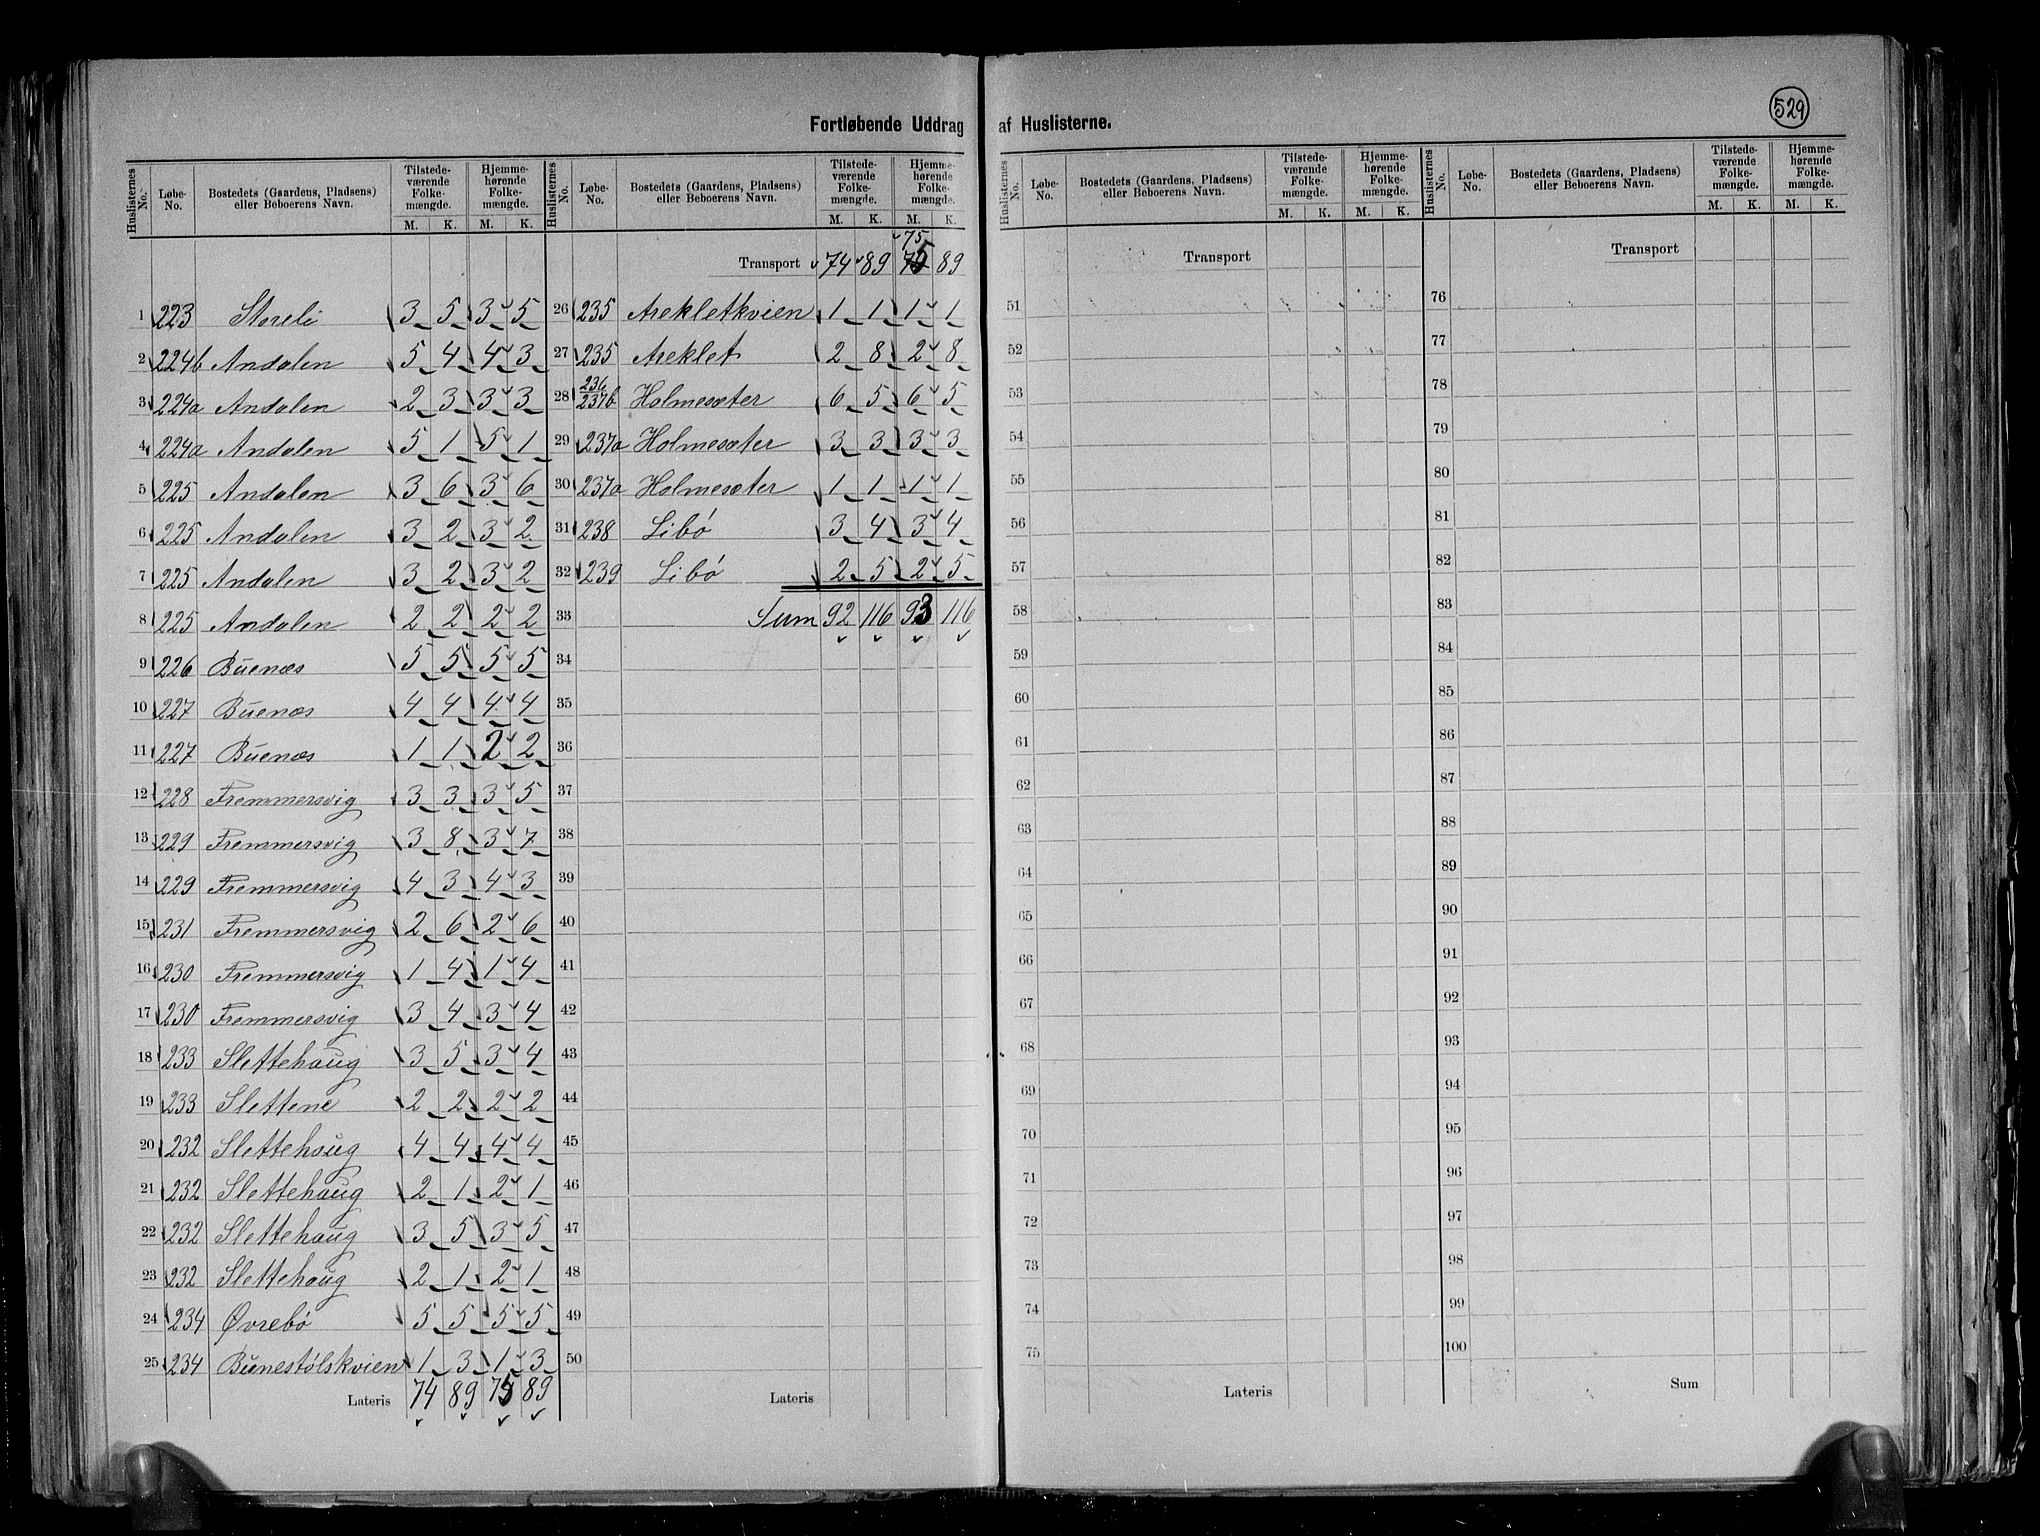 529
Fortløbende Uddrag af Huslisterne.
Huslisternes No. Løbe-No. Bostedets (Gaardens, Pladsens) eller Beboerens Navn. Tilstede-værende Folke-mængde. Hjemme-hørende Folke-mængde.
M. K. M. K.
1 223 Storeli 3 5 3 5
2 224b Andalen 5 4 4 3
3 224a Andalen 2 3 3 3
4 224a Andalen 5 1 5 1
5 225 Andalen 3 6 3 6
6 225 Andalen 3 2 3 2
7 225 Andalen 3 2 3 2
8 225 Andalen 2 2 2 2
9 226 Buenæs 5 5 5 5
10 227 Buenæs 4 4 4 4
11 227 Buenæs 1 1 2 2
12 228 Fremmersvig 3 3 3 5
13 229 Fremmersvig 3 8 3 7
14 229 Fremmersvig 4 3 4 3
15 231 Fremmersvig 2 6 2 6
16 230 Fremmersvig 1 4 1 4
17 230 Fremmersvig 3 4 3 4
18 233 Slettehaug 3 5 3 4
19 233 Slettene 2 2 2 2
20 232 Slettehaug 4 4 4 4
21 232 Slettehaug 2 1 2 1
22 232 Slettehaug 3 5 3 5
23 232 Slettehaug 2 1 2 1
24 234 Øvrebø 5 5 5 5
25 234 Bunestølskvien 1 3 1 3
Lateris 74 89 75 89
Huslisternes No. Løbe-No. Bostedets (Gaardens, Pladsens) eller Beboerens Navn. Tilstede-værende Folke-mængde. Hjemme-hørende Folke-mængde.
M. K. M. K.
75
Transport 74 89 75 89
26 235 Arekletkvien 1 1 1 1
27 235 Areklet 2 8 2 8
28 236 237b Holmesæter 6 5 6 5
29 237a Holmesæter 3 3 3 3
30 237a Holmesæter 1 1 1 1
31 238 Libø 3 4 3 4
32 239 Libø 2 5 2 5
33 Sum 92 116 93 116
34
35
36
37
38
39
40
41
42
43
44
45
46
47
48
49
50
Lateris
Huslisternes No. Løbe-No. Bostedets (Gaardens, Pladsens) eller Beboerens Navn. Tilstede-værende Folke-mængde. Hjemme-hørende Folke-mængde.
M. K. M. K.
Transport
51
52
53
54
55
56
57
58
59
60
61
62
63
64
65
66
67
68
69
70
71
72
73
74
75
Lateris
Huslisternes No. Løbe-No. Bostedets (Gaardens, Pladsens) eller Beboerens Navn. Tilstede-værende Folke-mængde. Hjemme-hørende Folke-mængde.
M. K. M. K.
Transport
76
77
78
79
80
81
82
83
84
85
86
87
88
89
90
91
92
93
94
95
96
97
98
99
100
Sum